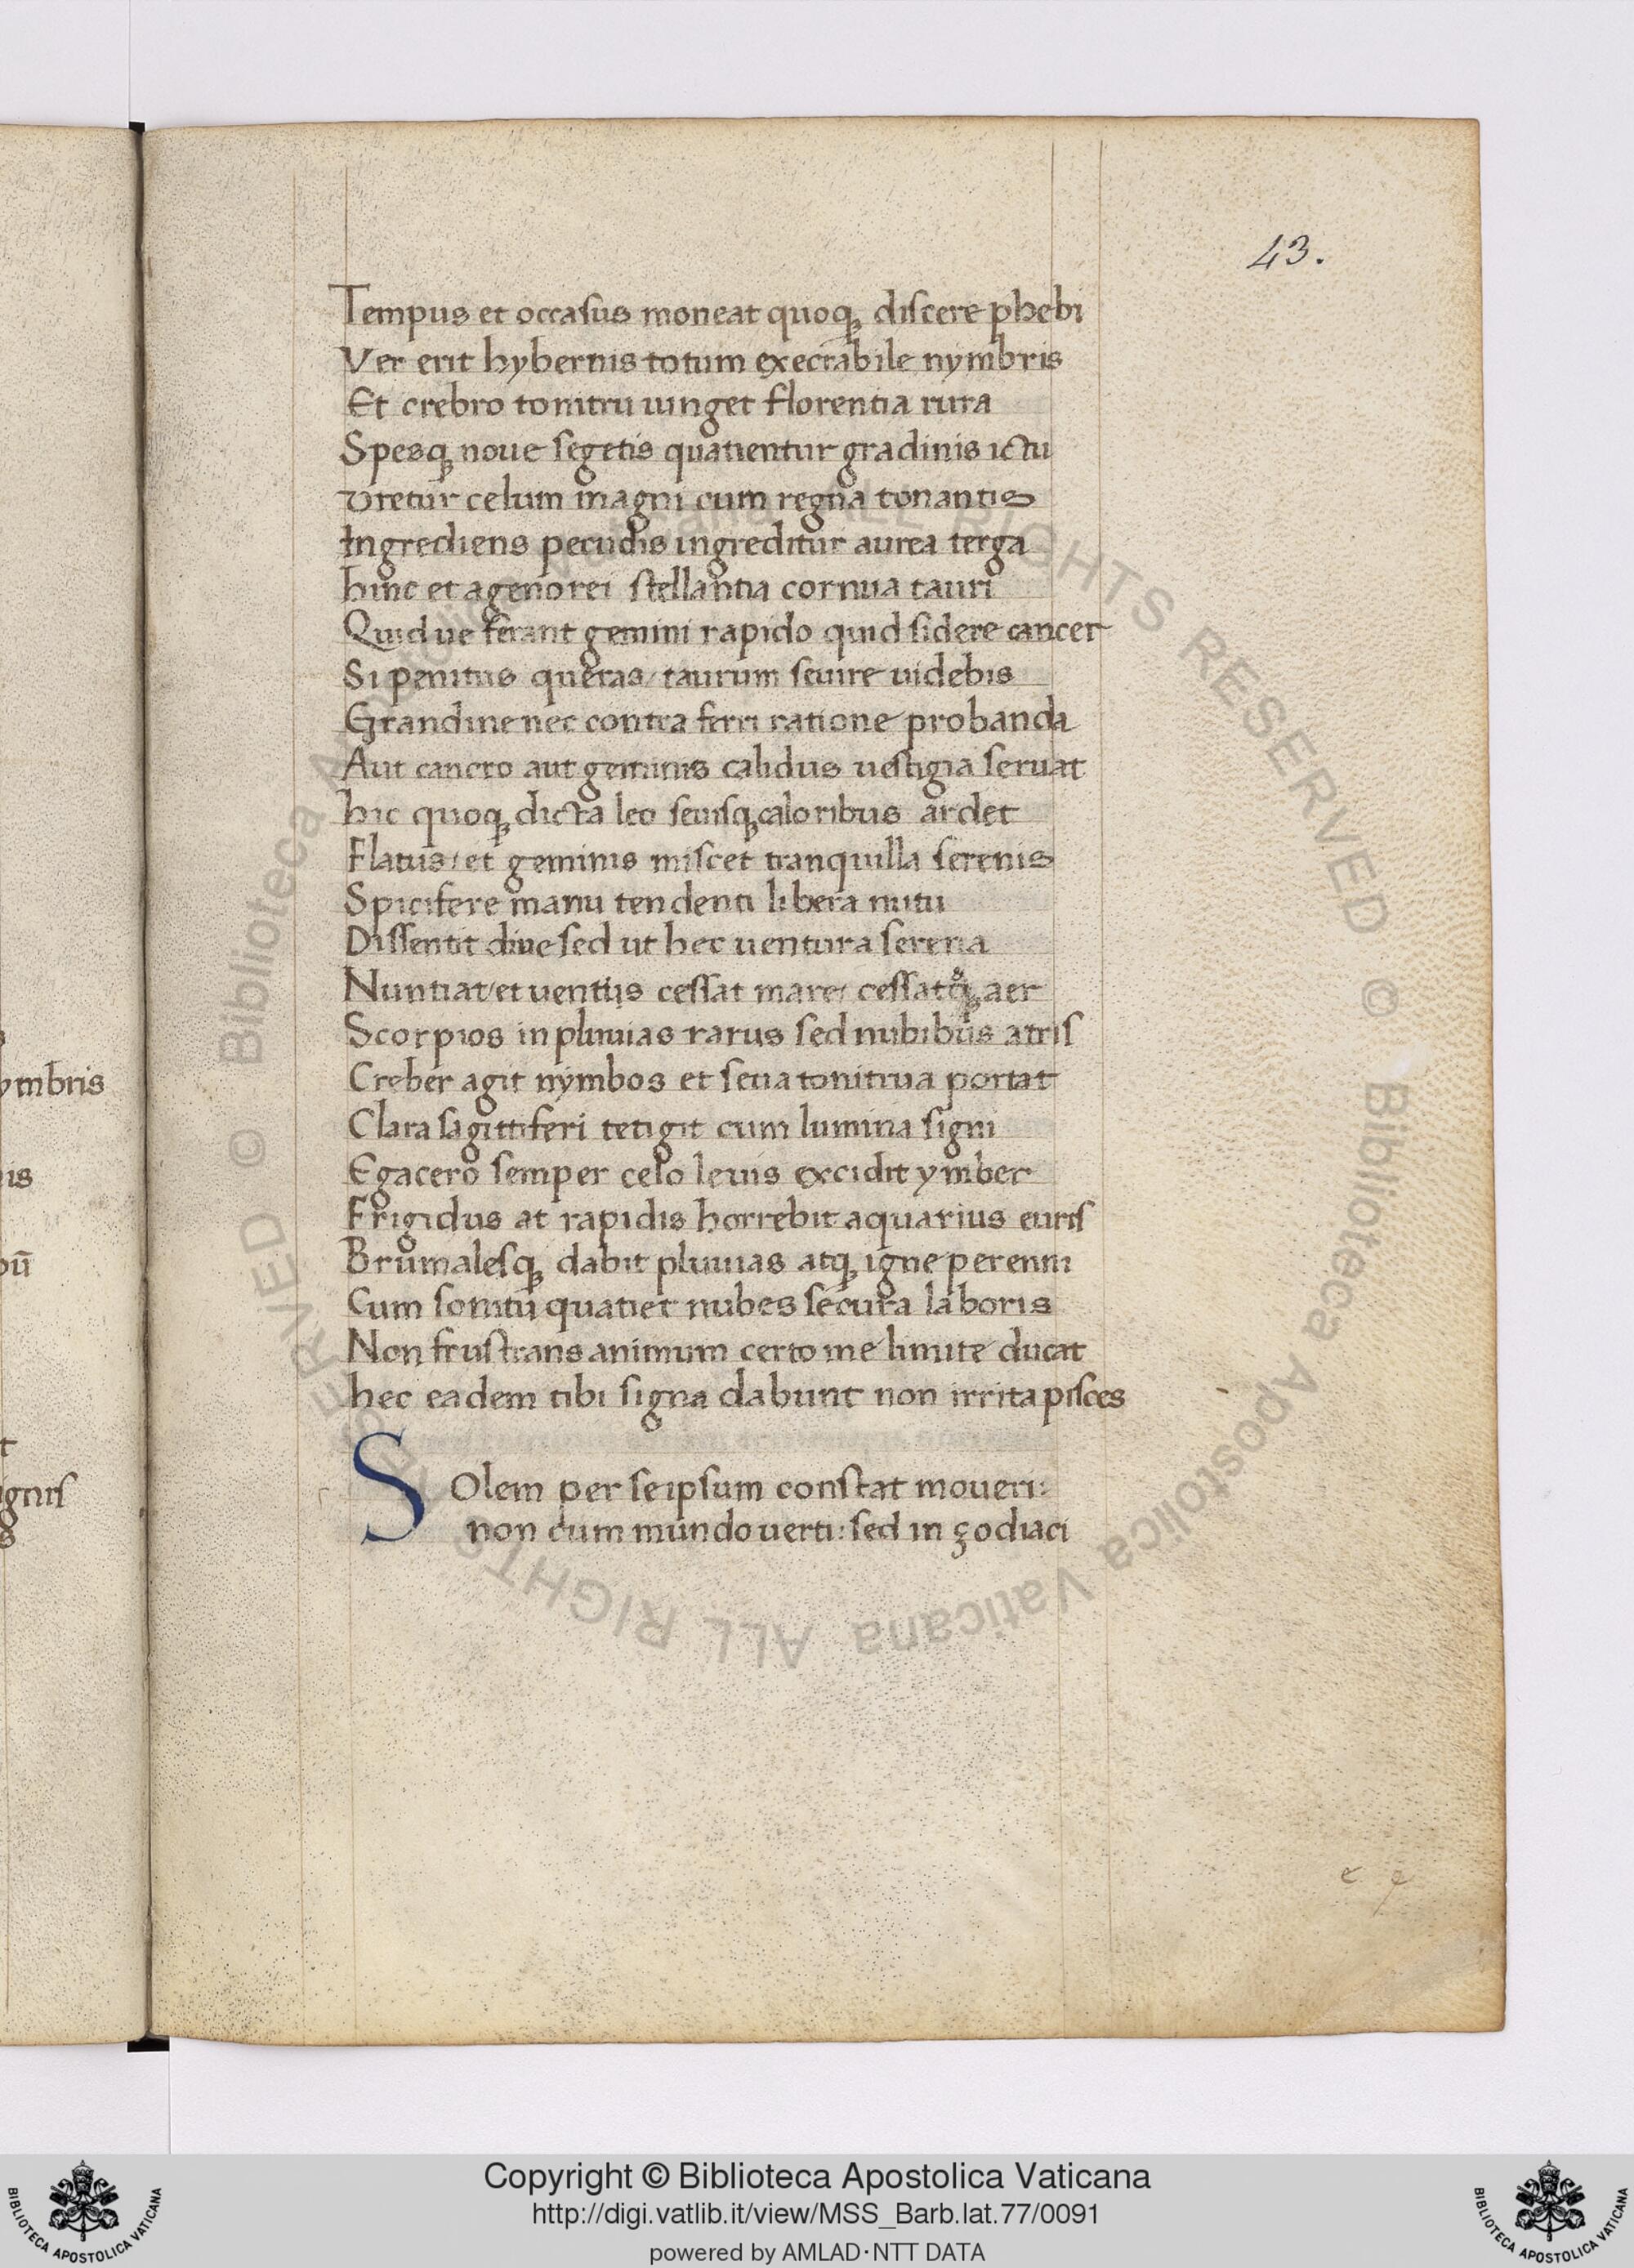 43.
Tempus et occasus moneat quoq; discere phebi
Ver erit hybernis totum execrabile nymbris
Et crebro tonitru uinget florentia rura
Spesq; noue segetis quatientur gradinis ictu
Vretur celum magni cum regna tonantis
Ingrediens pecudis ingreditur aurea terga
hinc et agenorei stellantia cornua tauri
Quid ue ferant gemini rapido quid sidere cancer
Si penitus queras/ taurum seuire uidebis
Grandine nec contra ferri ratione probanda
Aut cancro aut geminis calidus uestigia seruat
hic quoq; dicta leo seuisq; caloribus ardet
Flatus/ et geminis miscet tranquilla serenis
Spicifere manu tendenti libera nutu
Dissentit diue sed ut hec uentura serena
Nuntiat/ et uentiis cessat mare/ cessatq; aer
Scorpios in pluuias rarus sed nubibus atris
Creber agit nymbos et seua tonitrua portat
Clara sagittiferi tetigit cum lumina signi
Egacero semper celo leuis excidit ymber
Frigidus at rapidis horrebit aquarius euris
Brumalesq; dabit pluuias atq; igne perenni
Cum sonitu quatiet nubes secura laboris
Non frustrans animum certo me limite ducat
hec eadem tibi signa dabunt non irrita pisces
SOlem per seipsum constat moueri:
non cum mundo uerti: sed in çodiaci
ymbris
is
ignis
Copyright © Biblioteca Apostolica Vaticana
http://digi.vatlib.it/view/MSS_Barb.lat.77/0091
powered by AMLAD·NTT DATA
BIBLIOTECA APOSTOLICA VATICANA
BIBLIOTECA APOSTOLICA VATICANA
© Biblioteca Apostolica Vaticana ALL RIGHTS RESERVED © Biblioteca Apostolica Vaticana ALL RIGHTS RESERVED